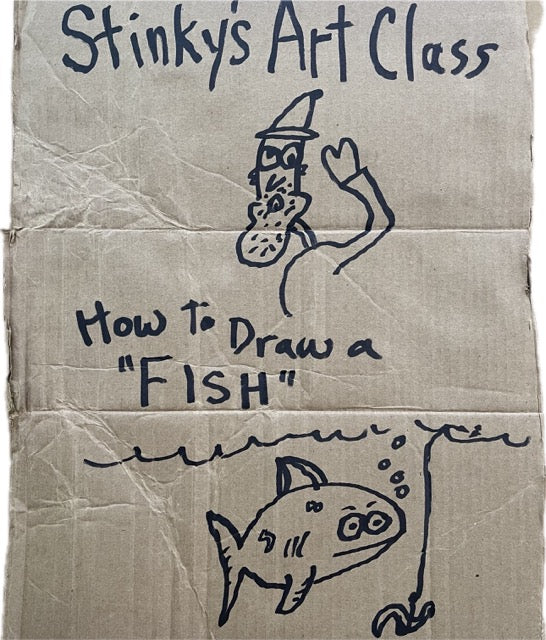 Stinky's Art Class
How To Draw a
"FISH"